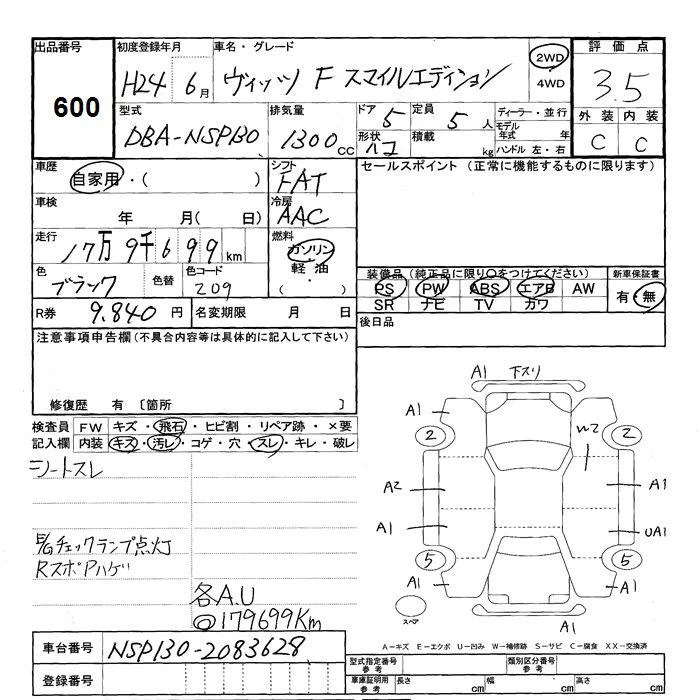 出品番号 初度登録年月 車名・グレード 評価点
600 H24 6月 ヴィッツ F スマイルエディション 2WD 3.5
4WD
型式 排気量 ドア 定員 ディーラー・並行 外装 内装
DBA-NSP130 1300cc 5 5人 モデル年式 年 C C
形状 ハコ 積載 kg ハンドル 左・右
車歴 シフト セールスポイント (正常に機能するものに限ります)
自家用・( ) FAT
車検 冷房
年 月( 日) AAC
走行 17万9千699km 燃料
ガソリン
軽油
・
( )
色 色替 色コード 装備品(純正品に限り○をつけてください) 新車保証書
ブラック 209 PS PW ABS エアB AW 有・無
SR ナビ TV カワ
R券 9,840円 名変期限 月 日 後日品
注意事項申告欄(不具合内容等は具体的に記入して下さい)
修復歴 有 〔箇所 〕
検査員 FW キズ・飛石・ヒビ割・リペア跡・×要
記入欄 内装 キズ・汚レ・コゲ・穴・スレ・キレ・破レ
シートスレ
E/Gチェックランプ点灯
RスポPハゲ
各A.U
◎179699Km
A1 下スリ
A1 A1
2 W2 2
A2 A1
A1 UA1
5 5
A1 A1
スペア A1
A=キズ E=エクボ U=凹み W=補修跡 S=サビ C=腐食 XX=交換済
車台番号 NSP130-2083628
登録番号
型式指定番号 参考 類別区分番号 参考
車庫証明用 参考 長さ cm 幅 cm 高さ cm